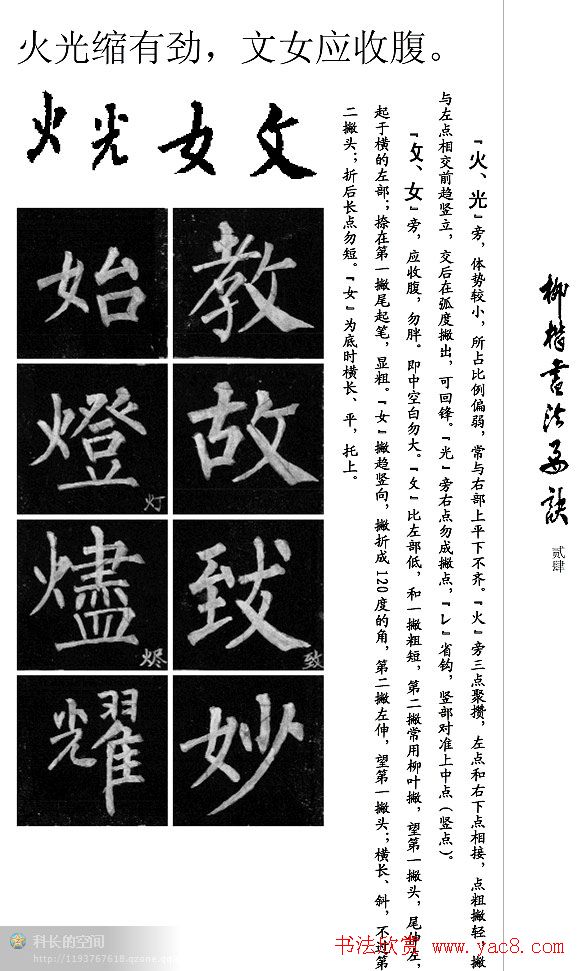 火光缩有劲，文女应收腹。
火 光 女 攵
柳楷书法要诀
贰肆
『火、光』旁，体势较小，所占比例偏弱，常与右部上平下不齐。『火』旁三点聚攒，左点和右下点相接，点粗撇轻，撇
与左点相交前趋竖立，交后在弧度撇出，可回锋。『光』旁右点勿成撇点，『㇄』省钩，竖部对准上中点（竖点）。
『攵、女』旁，应收腹，勿胖。即中空白勿大。『攵』比左部低，和一撇粗短，第二撇常用柳叶撇，望第一撇头，尾伸左，
起于横的左部；捺在第一撇尾起笔，显粗。『女』撇趋竖向，撇折成120度的角，第二撇左伸，望第一撇头；横长、斜，不过第
二撇头；折后长点勿短。『女』为底时横长、平，托上。
始 教
燈 故
灯
燼 致
烬 致
耀 妙
科长的空间
http://1193767618.qzone.qq.
书法欣赏 www.yac8.com